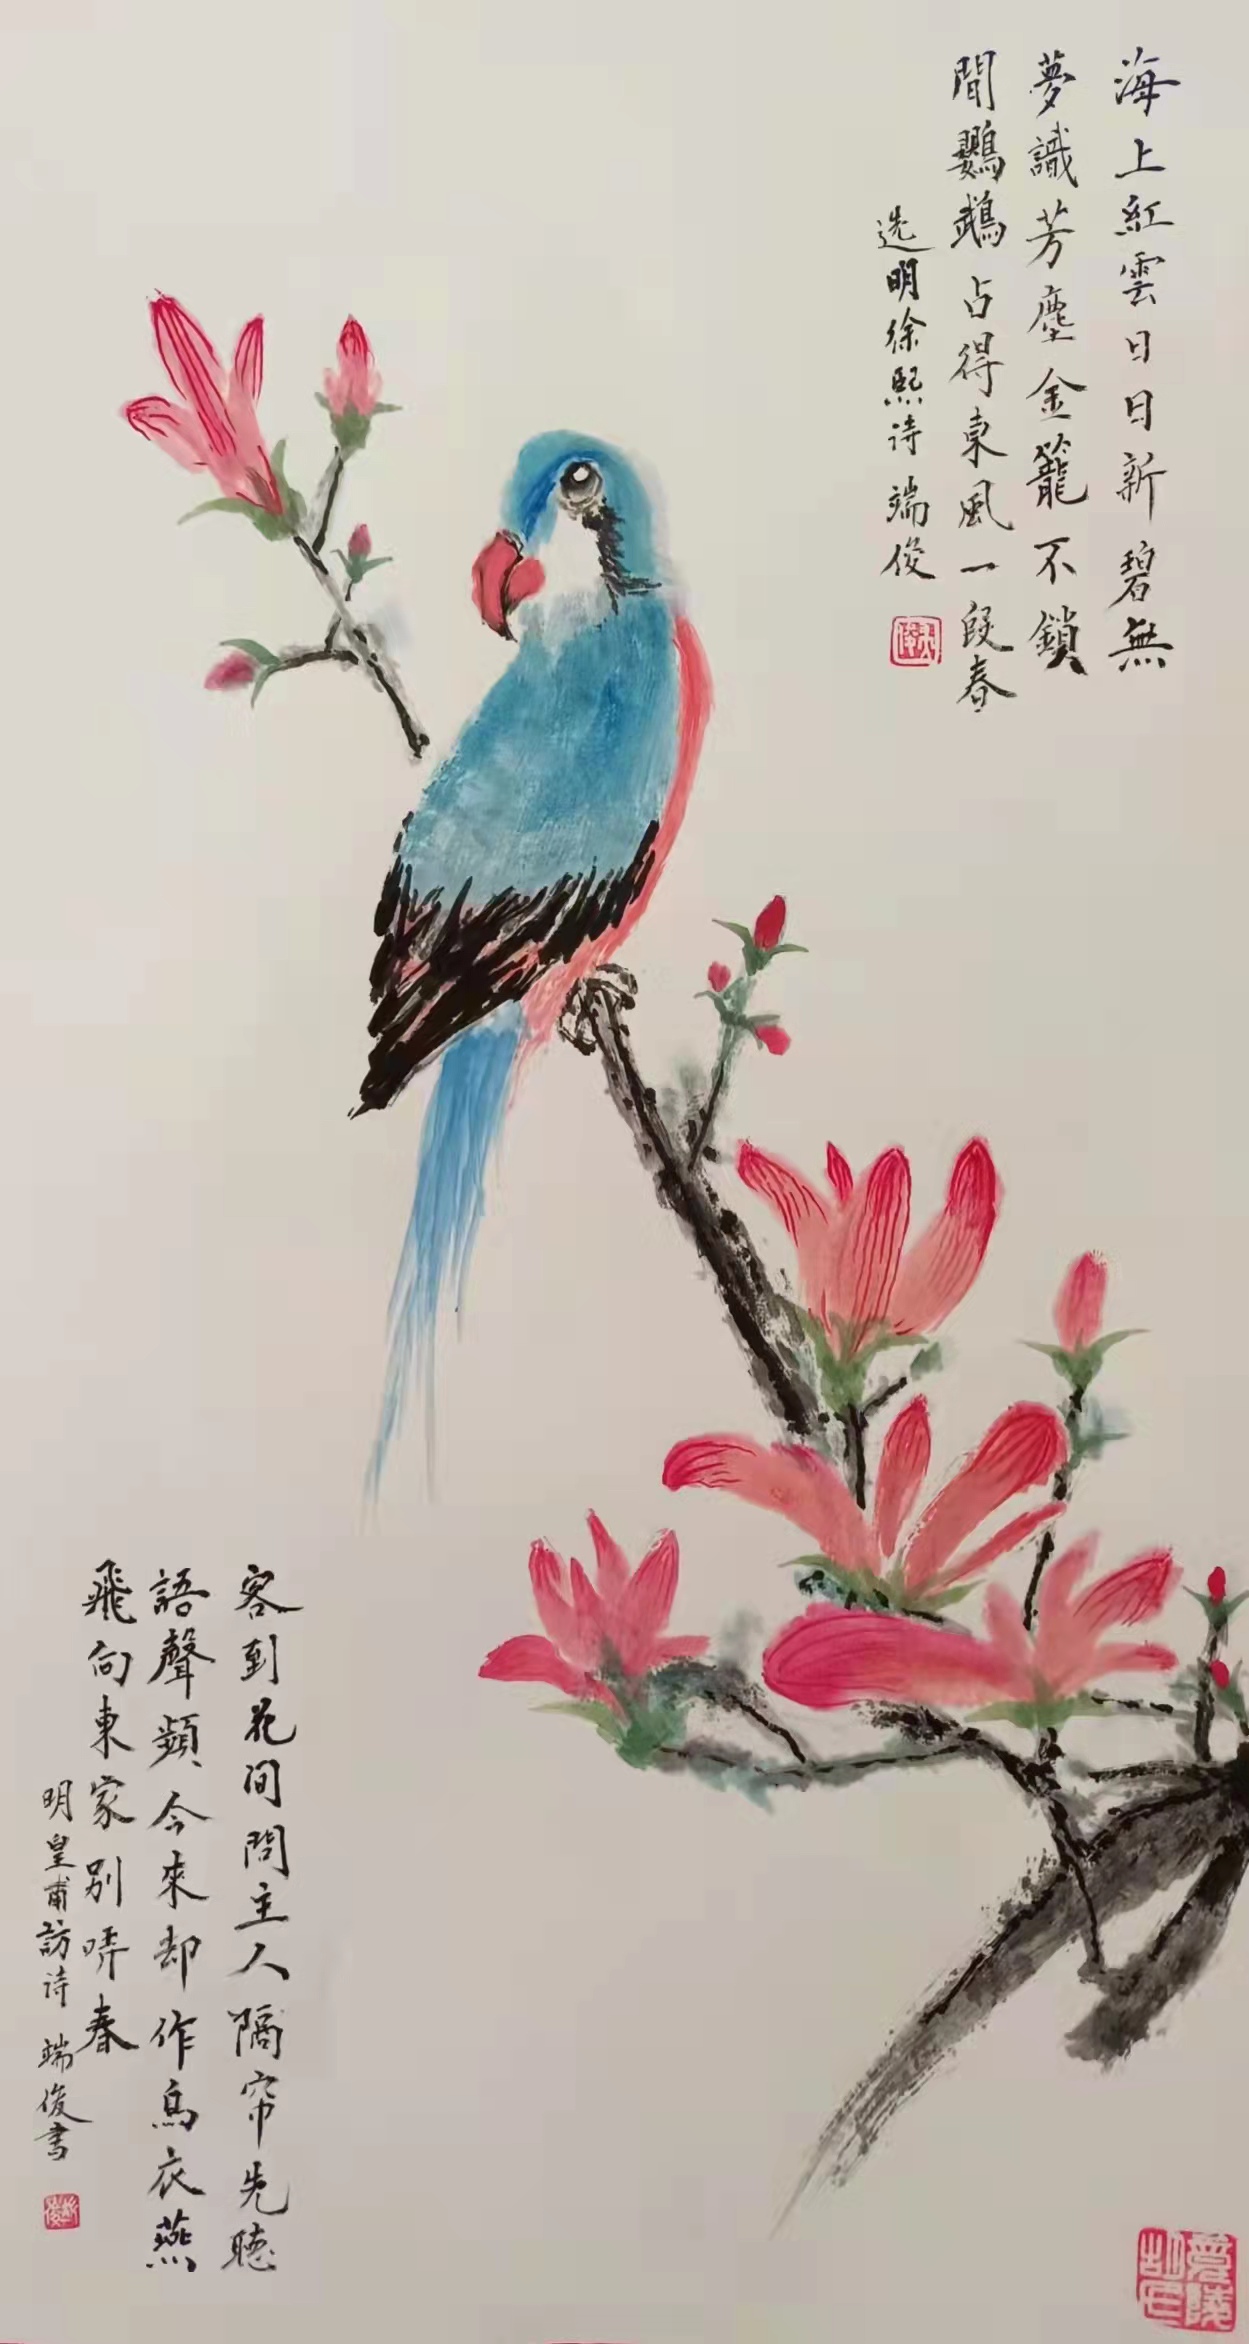 海上紅雲日日新碧無
夢識芳塵金籠不鎖
閒鸚鵡占得東風一段春
选明徐熙诗 端俊
客到花间問主人隔帘先聴
語聲頻今來却作烏衣燕
飛向東家別哢春
明皇甫訪诗 端俊書